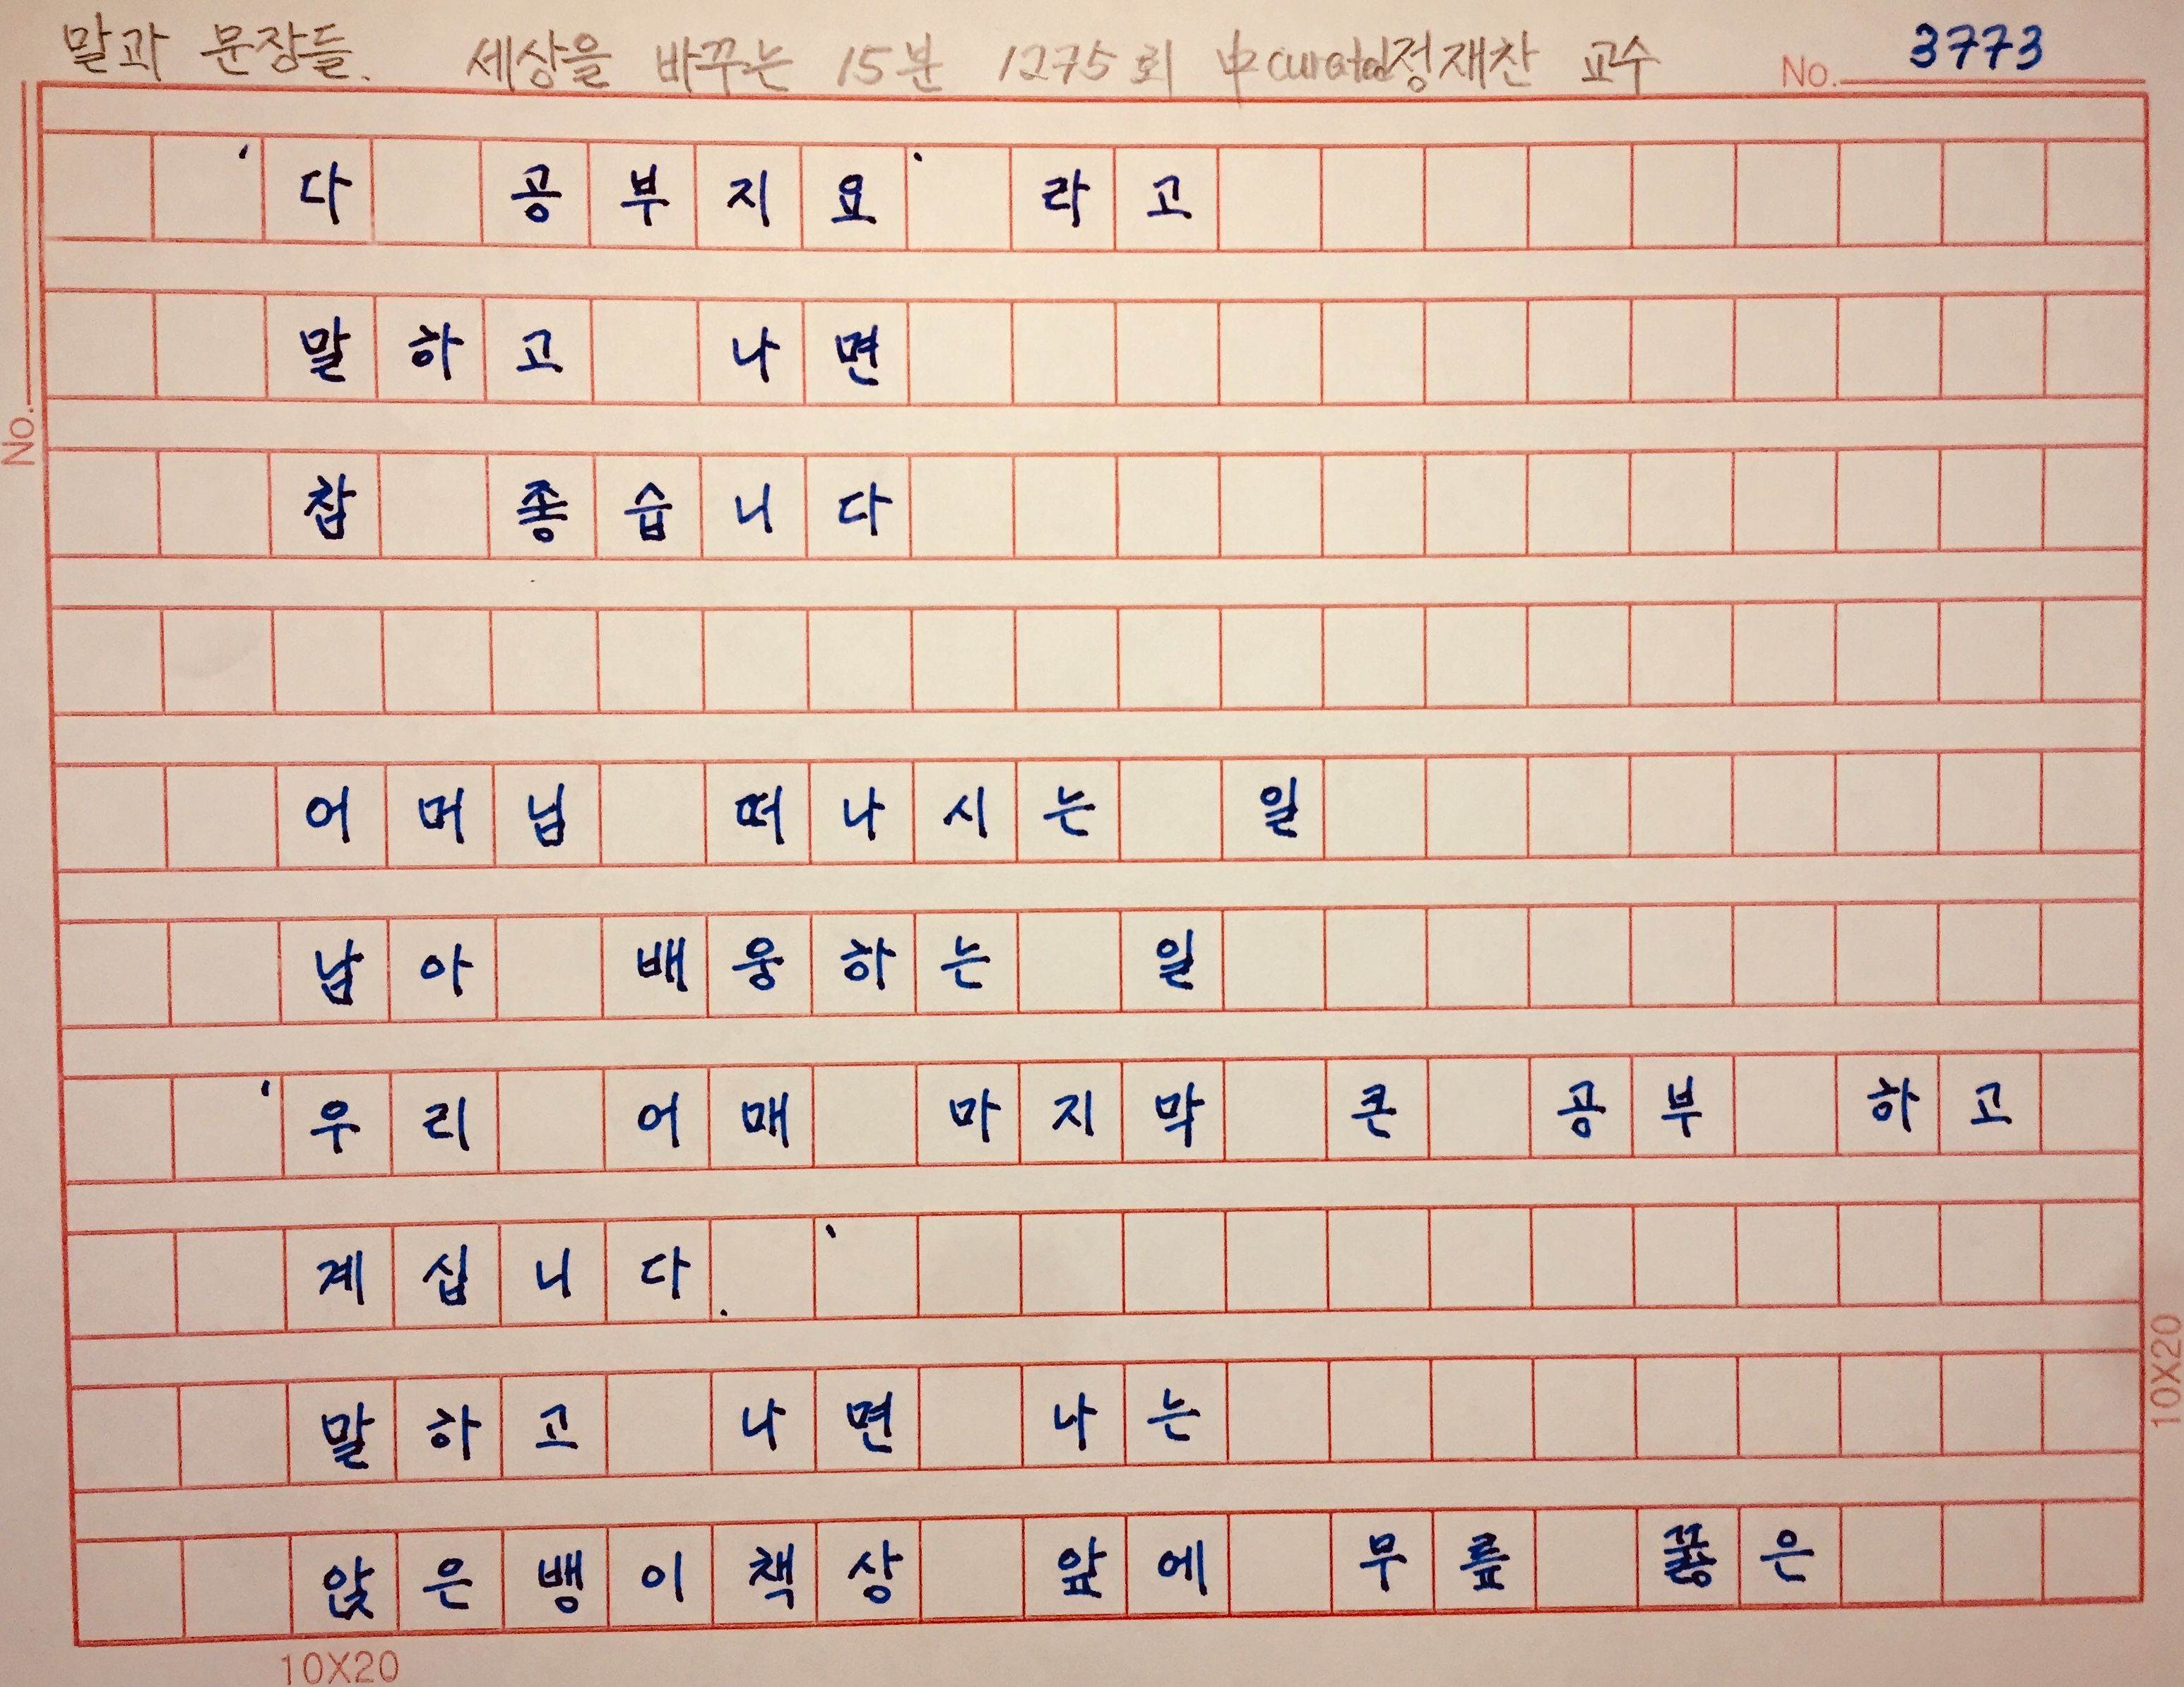 말과 문장들. 세상을 바꾸는 15분 1275회 中 curated 정재찬 교수 No. 3773
'다 공부지요' 라고
말하고 나면
참 좋습니다
No.
어머님 떠나시는 일
남아 배웅하는 일
'우리 어매 마지막 큰 공부 하고
계십니다.'
말하고 나면 나는
앉은뱅이책상 앞에 무릎 꿇은
10X20
10X20